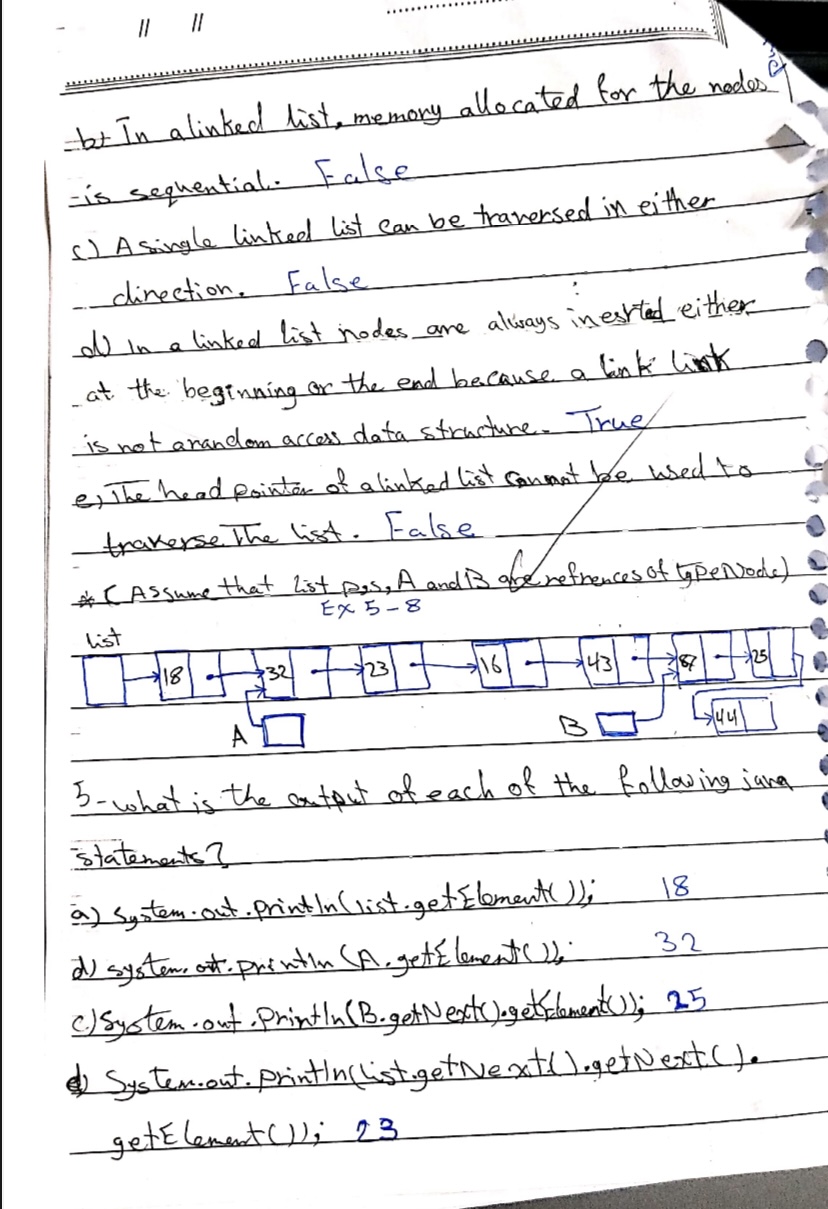 // //
b) In a linked list, memory allocated for the nodes
is sequential. False
c) A single linked list can be traversed in either
direction. False
d) In a linked list nodes are always inesrted either
at the beginning or the end because a link link
is not a random access data structure. True
e) The head pointer of a linked list cannot be used to
traverse The list. False
* (Assume that list p,s, A and B are refrences of type Node)
Ex 5-8
list
18 32 23 16 43 87 25
A B 44
5-what is the output of each of the following java
statements?
a) System.out.println(list.getElement()); 18
d) system.out.println(A.getElement()); 32
c) System.out.println(B.getNext().getElement()); 25
d) System.out.println(list.getNext().getNext().
getElement()); 23